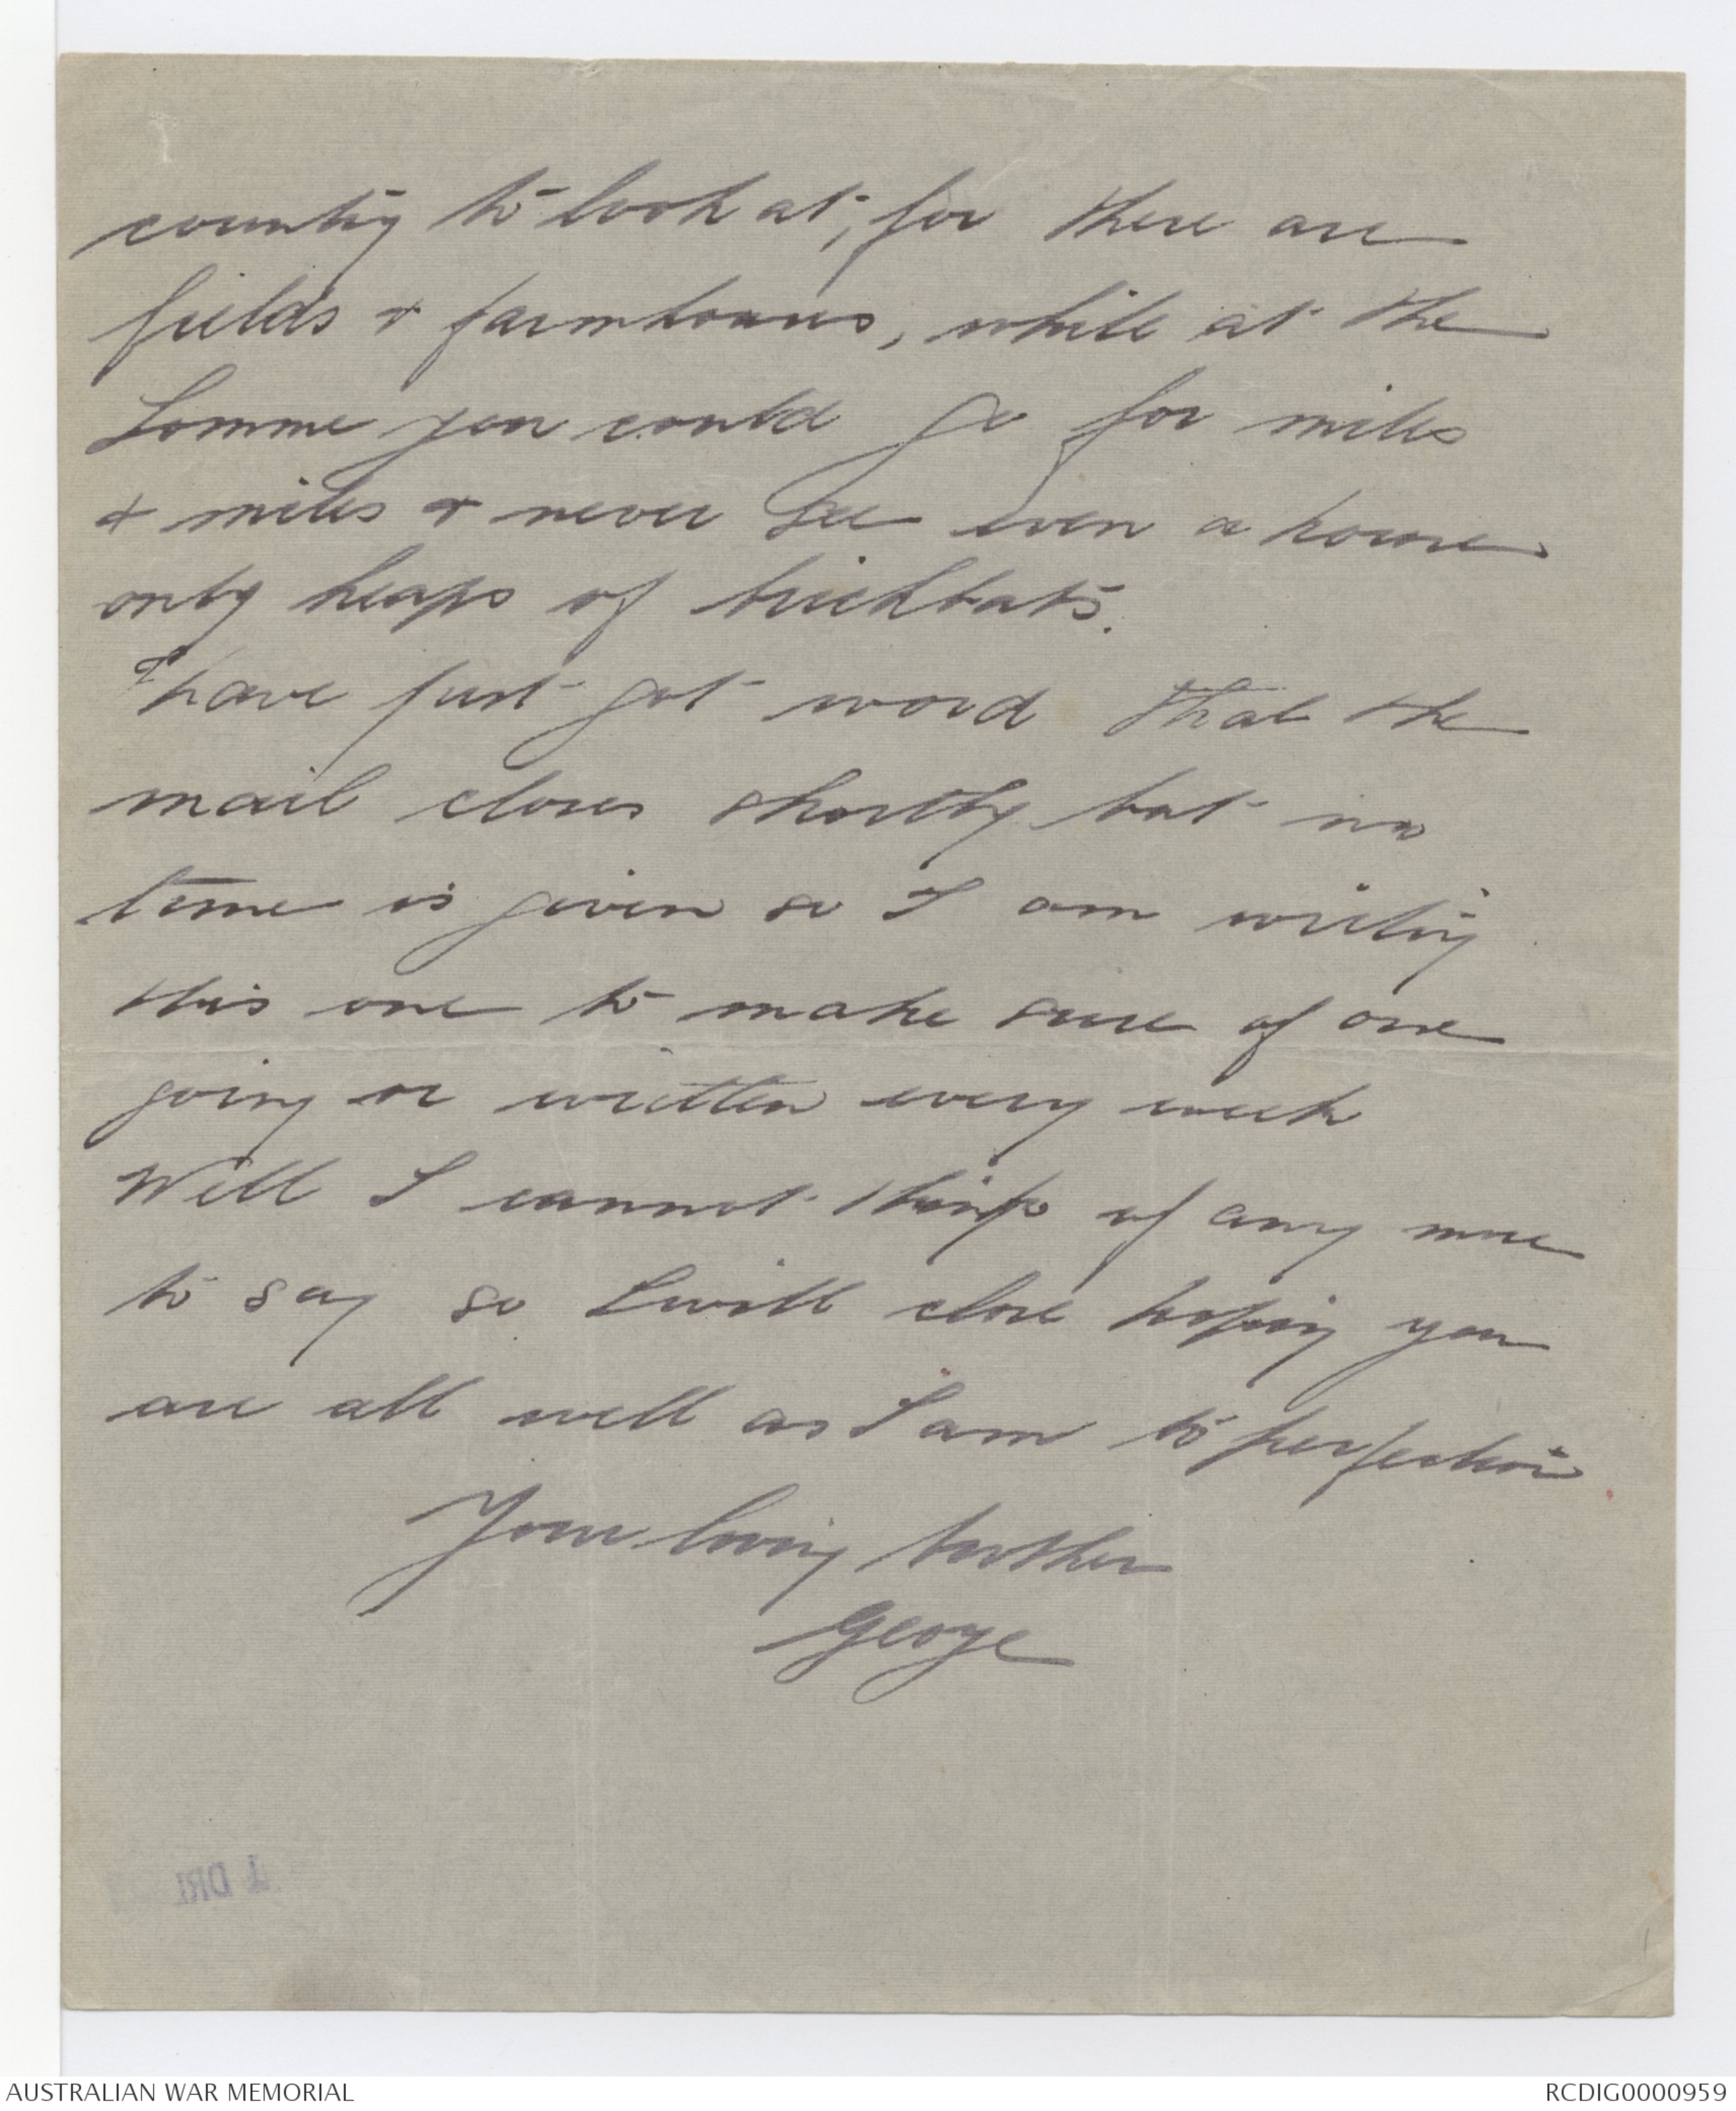 country to look at, for there are
fields & farmhouses, while at the
Somme you could go for miles
& miles & never see even a house
only heaps of brickbats.
I have just got word that the
mail closes shortly but no
time is given so I am writing
this one to make sure of one
going or written every week
Well I cannot think of any more
to say so I will close hoping you
are all well as I am to perfection
Your loving brother
George
1 DRL
AUSTRALIAN WAR MEMORIAL
RCDIG0000959